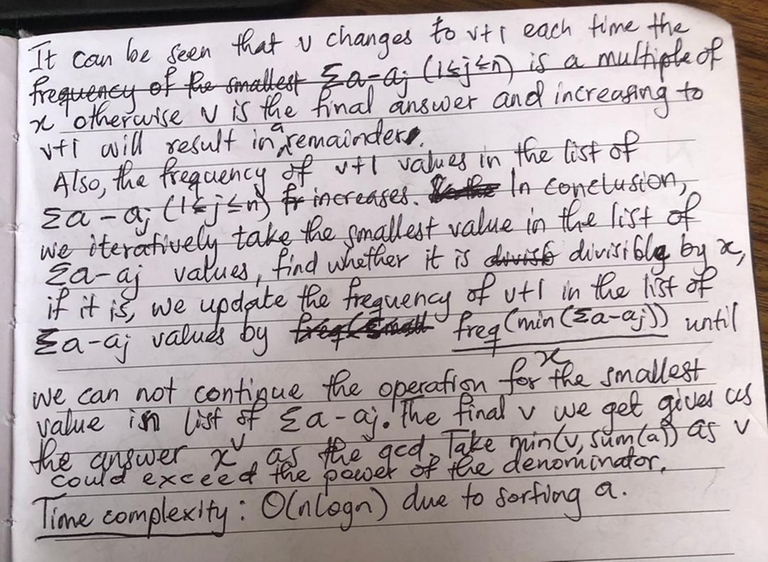 It can be seen that v changes to v+1 each time the
frequency of the smallest Σa-aj (1≤j≤n) is a multiple of
x otherwise v is the final answer and increasing to
v+1 will result in a remainder.
Also, the frequency of v+1 values in the list of
Σa-aj (1≤j≤n) increases. In conclusion,
we iteratively take the smallest value in the list of
Σa-aj values, find whether it is divisible by x,
if it is, we update the frequency of v+1 in the list of
Σa-aj values by freq(min(Σa-aj)) until
x
we can not continue the operation for the smallest
value in list of Σa-aj. The final v we get gives us
the answer x^v as the gcd. Take min(v, sum(a)) as v
could exceed the power of the denominator.
Time complexity: O(nlogn) due to sorting a.